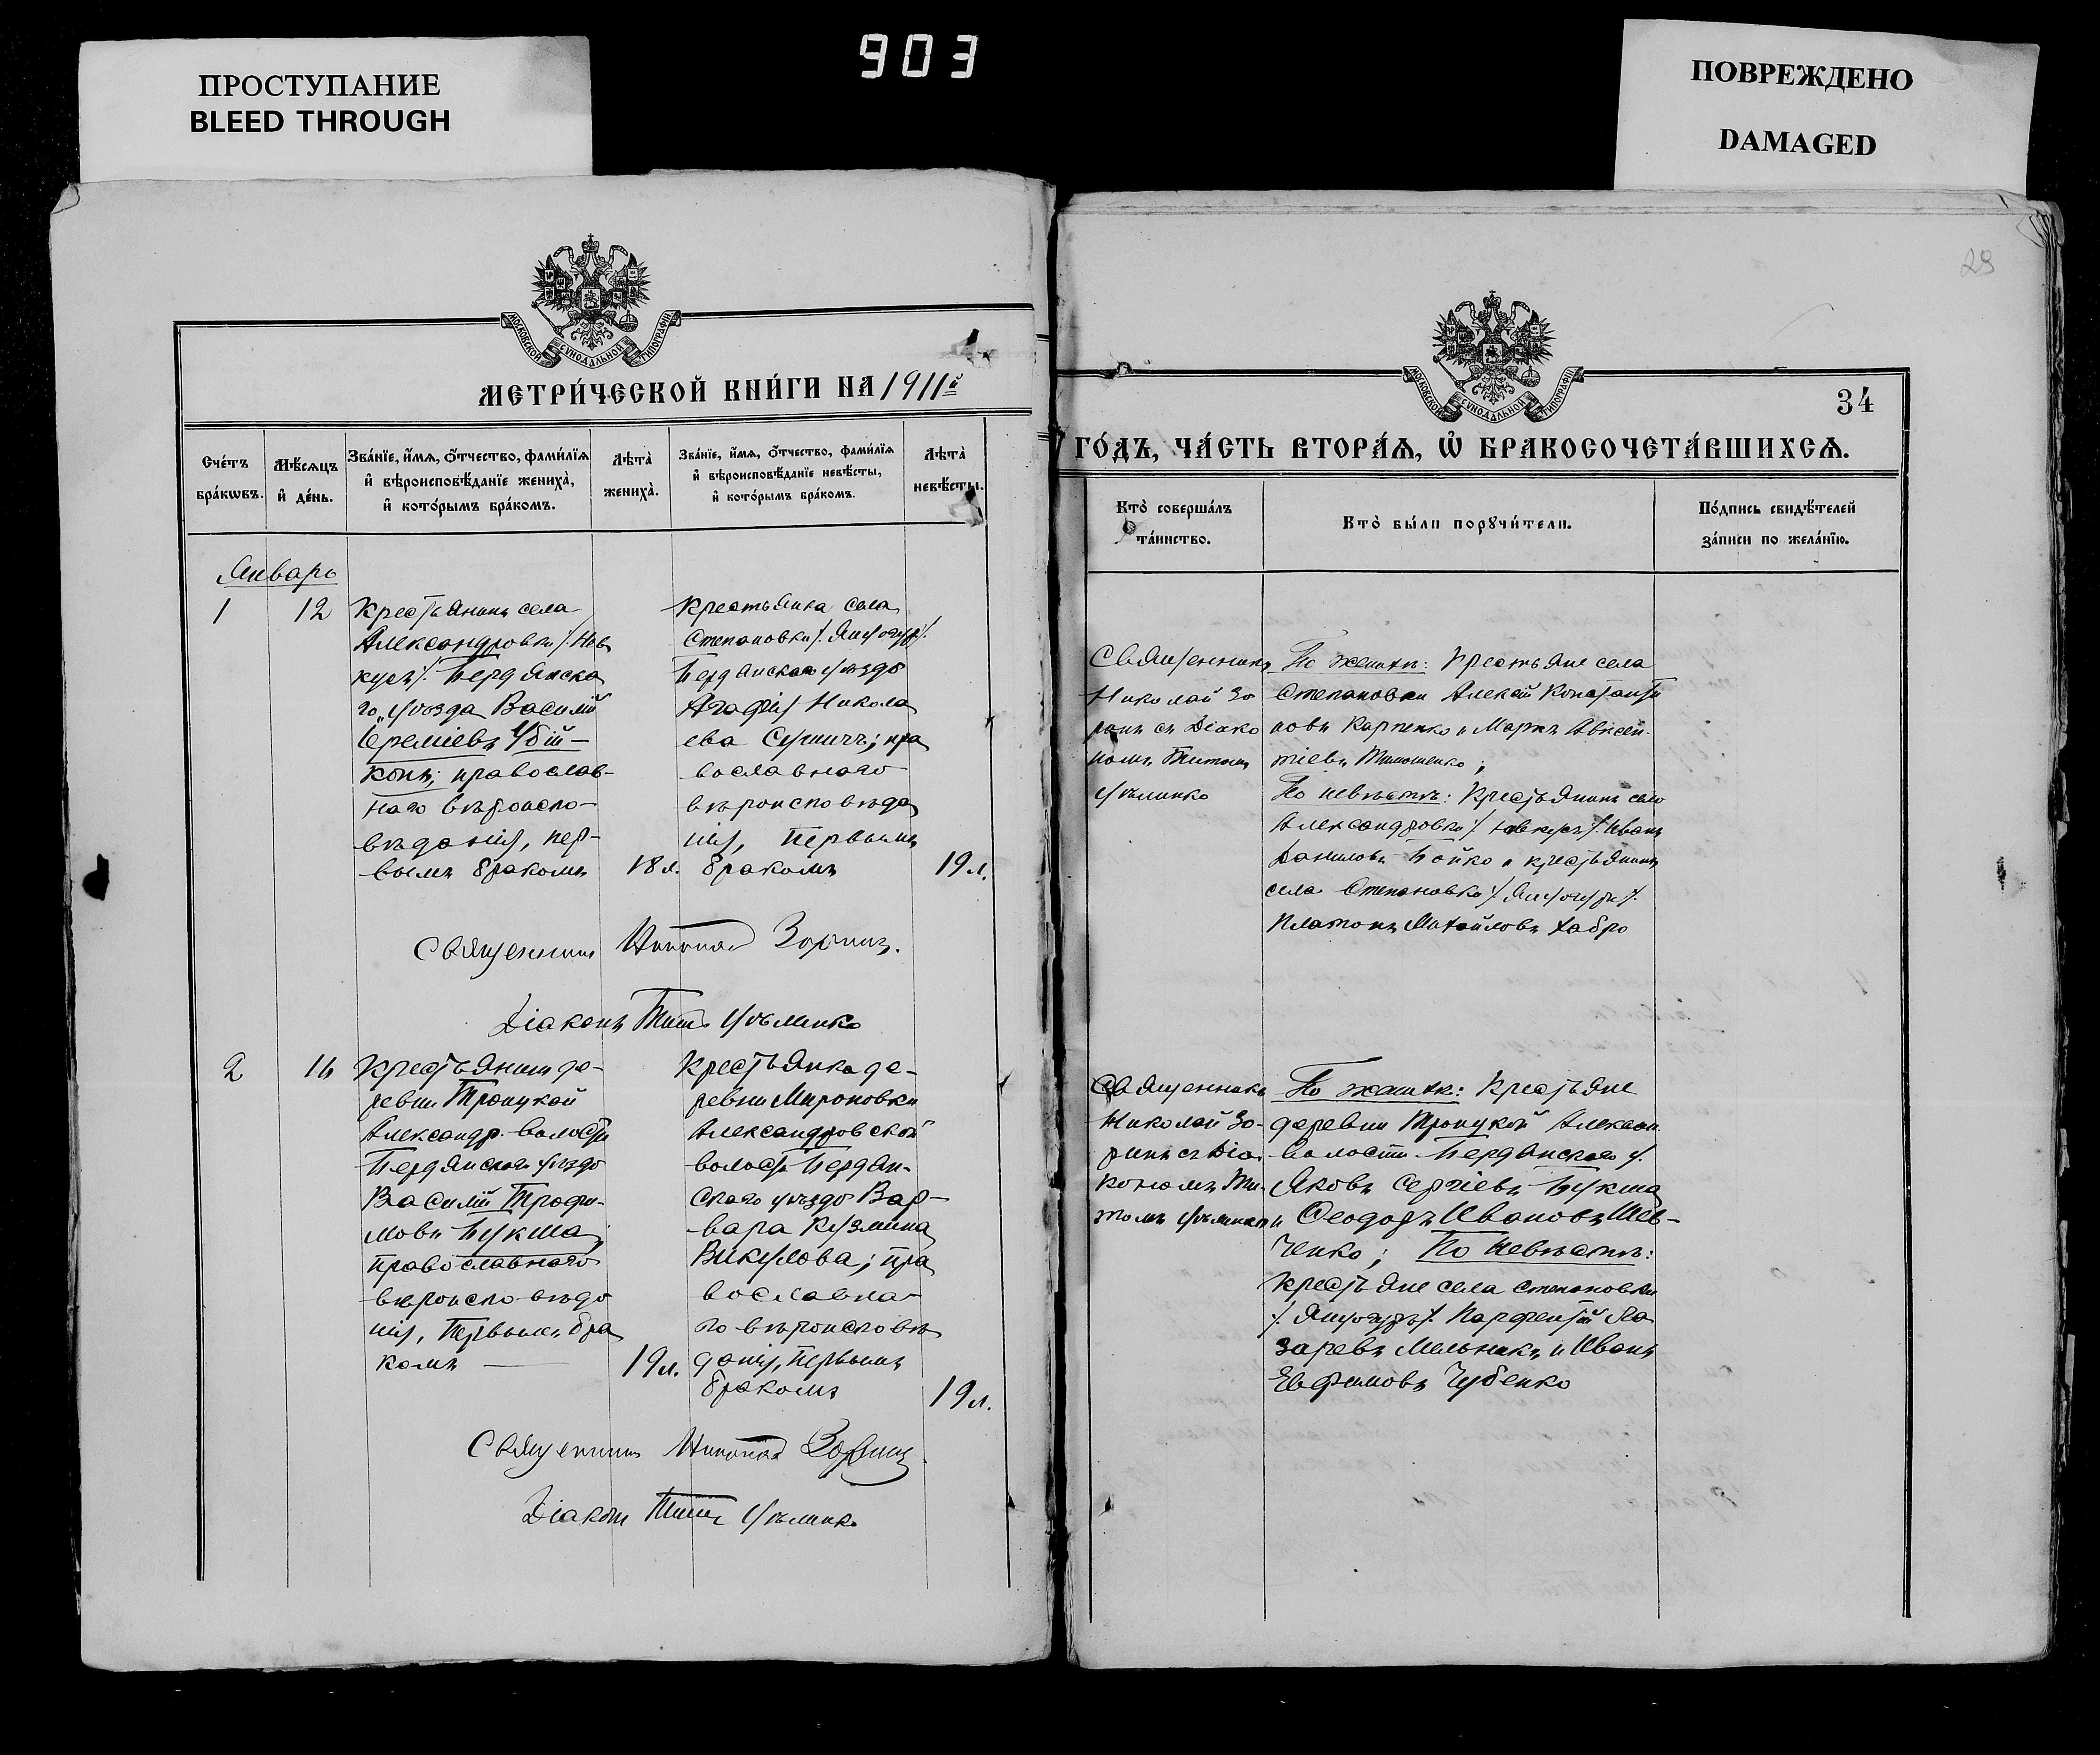 ПРОСТУПАНИЕ
BLEED THROUGH
903
ПОВРЕЖДЕНО
DAMAGED
29
МОСКОВСКОЙ СУНОДАЛЬНОЙ ТИПОГРАФІИ
МЕТРИ́ЧЕСКОЙ КНИ́ГИ НА 1911й
Сче́тъ бра́кѡвъ.
Мѣ́сяцъ и де́нь.
Зва́нїе, и́мя, о́тчество, фами́лїя
и вѣроисповѣ́данїе жениха̀,
и кото́рымъ бра́комъ.
Лѣта̀ жениха̀.
Зва́нїе, и́мя, о́тчество, фами́лїя
и вѣроисповѣ́данїе невѣ́сты,
и кото́рымъ бра́комъ.
Лѣта̀ невѣ́сты.
Январь
1
12
Крестьянинъ села
Александровки /:
:/ Бердянска
го уѣзда Василій
Іереміевъ
православ-
наго вѣроиспо-
вѣданія, пер-
вымъ бракомъ
18 л.
Крестьянка села
Степановки /:
Бердянскаго уѣзда
Агафія Никола
ева пра
вославнаго
вѣроисповѣда
нія, первымъ
бракомъ
19 л.
Священникъ Николай Зоринъ.
Діаконъ Титъ
2
Крестьянинъ де-
ревни Троицкой
Александр. волости
Бердянскаго уѣзда
Василій Трофи-
мовъ Букша;
православнаго
вѣроисповѣда
нія, первымъ бра
комъ
19 л.
Крестьянка де-
ревни Мироновки
Александровской
волости Бердян-
скаго уѣзда Вар-
вара Кузмина
Викулова; пра
вославна-
го вѣроисповѣ
данія, первымъ
бракомъ
19 л.
Священникъ Николай Зоринъ
Діаконъ Титъ
МОСКОВСКОЙ СУНОДАЛЬНОЙ ТИПОГРАФІИ
34
ГО́ДЪ, ЧА́СТЬ ВТОРА́Я, Ѡ БРАКОСОЧЕТА́ВШИХСЯ.
Кто̀ соверша́лъ
та́инство.
Кто̀ бы́ли порꙋчи́тели.
По́дпись свидѣ́телей
за́писи по жела́нїю.
Священникъ
Николай Зо
ринъ съ Діако
номъ Титомъ
По женихѣ: Крестьяне села
Степановки Алексѣй Константи
новъ Карпенко и Маркъ Авксен-
тіевъ Тимошенко;
По невѣстѣ: Крестьянинъ села
Александровки /: :/ Иванъ
Даниловъ Бойко и крестьянинъ
села Степановки /: :/
Платонъ Михайловъ Хабро
Священникъ
Николай Зо-
ринъ съ Діа
кономъ Ти-
томъ
По женихѣ: Крестьяне
деревни Троицкой Алексан.
волости Бердянскаго у.
Яковъ Сергіевъ Букша
и Ѳеодоръ Ивановъ Шев-
ченко; По невѣстѣ:
крестьяне села Степановки
/: :/ Парфентій Ла
заревъ Мельникъ и Иванъ
Евфимовъ Чубенко